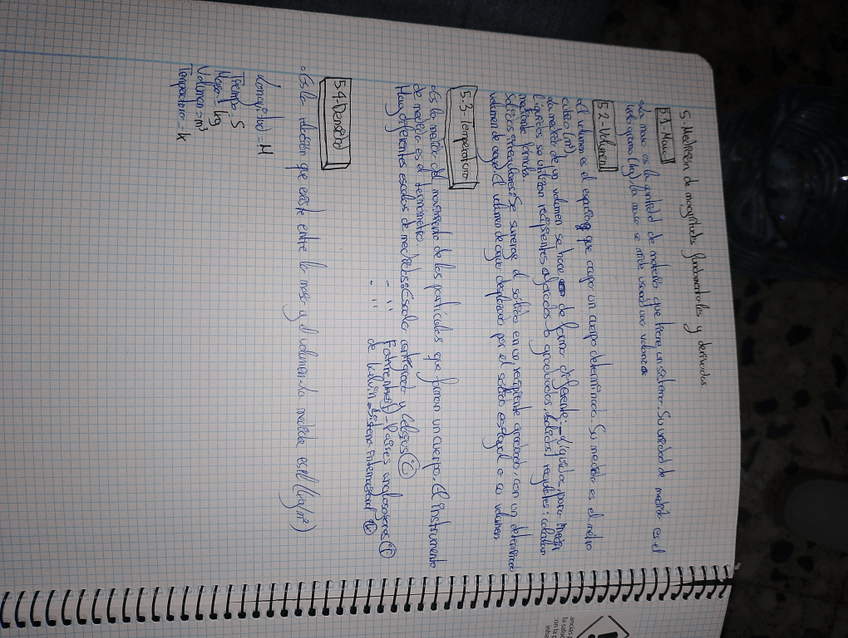 5. Medición de magnitudes fundamentales y derivadas.
5.1. Masa
La masa es la cantidad de materia que tiene un sistema. Su unidad de medida es el
kilogramo (kg), la masa se mide usando una balanza
5.2. Volumen
El volumen es el espacio que ocupa un cuerpo determinado. Su medida es el metro
cúbico (m³)
La medida de un volumen se hace de forma diferente: -Líquidos, para medir
líquidos se utilizan recipientes graduados. Sólidos regulares: calculan
mediante fórmula
Sólidos irregulares: Se sumerge el sólido en un recipiente graduado, con un determinado
volumen de agua. El volumen de agua desplazado por el sólido es igual a su volumen
5.3. Temperatura
Es la medida del movimiento de las partículas que forman un cuerpo. El instrumento
de medida es el termómetro
Hay diferentes escalas de medidas: Escala centígrado y Celsius C
- " " Fahrenheit - Países anglosajones F
- " " de Kelvin - Sistema internacional K
5.4-Densidad
Es la relación que existe entre la masa y el volumen. La medida es el (kg/m³)
Longitud = M
Tiempo = S
Masa = kg
Volumen = m³
Temperatura = K